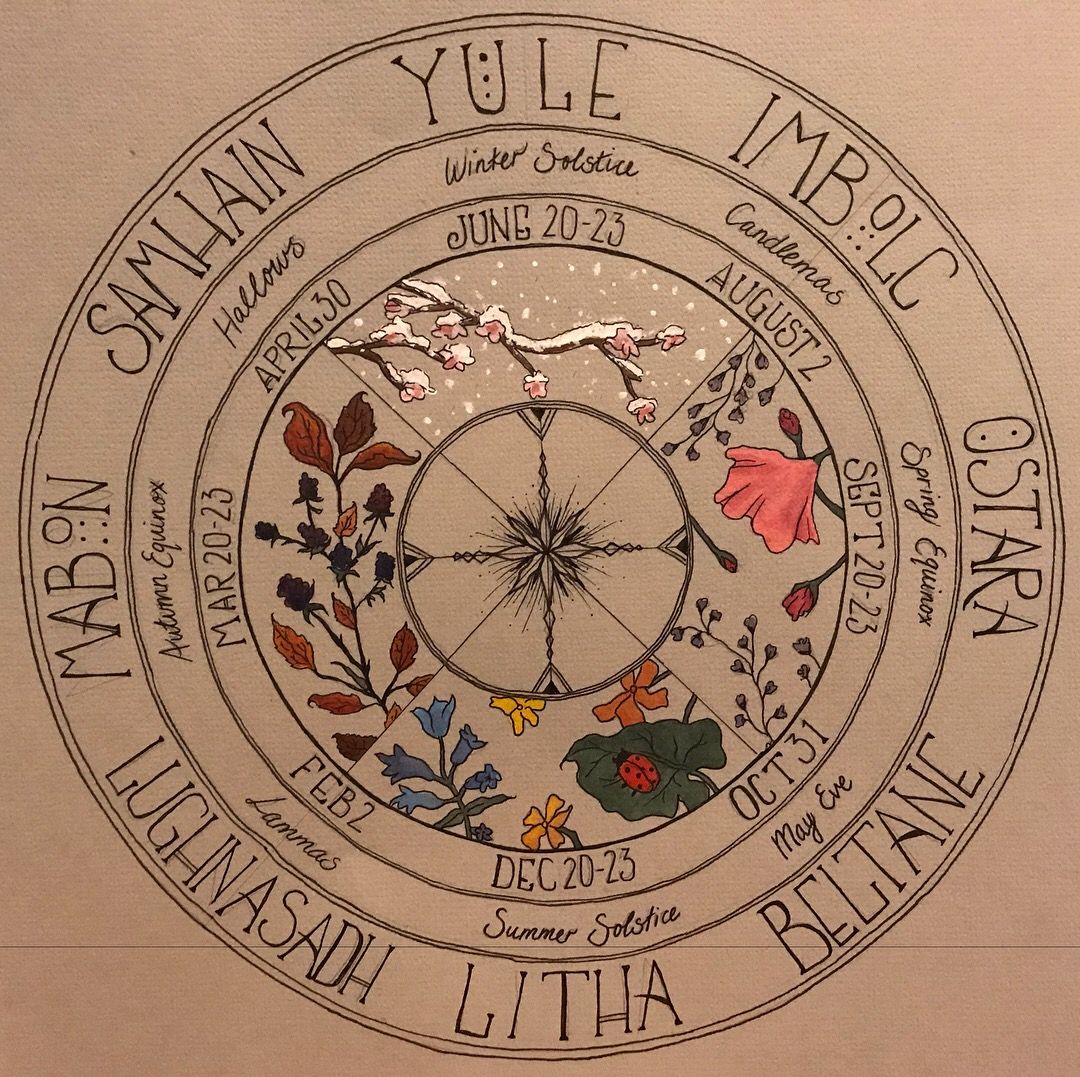 YULE
Winter Solstice
JUNE 20-23
IMBOLC
Candlemas
AUGUST 2
OSTARA
Spring Equinox
SEPT 20-23
BELTANE
May Eve
OCT 31
LITHA
Summer Solstice
DEC 20-23
LUGHNASADH
Lammas
FEB 2
MABON
Autumn Equinox
MAR 20-23
SAMHAIN
Hallows
APRIL 30